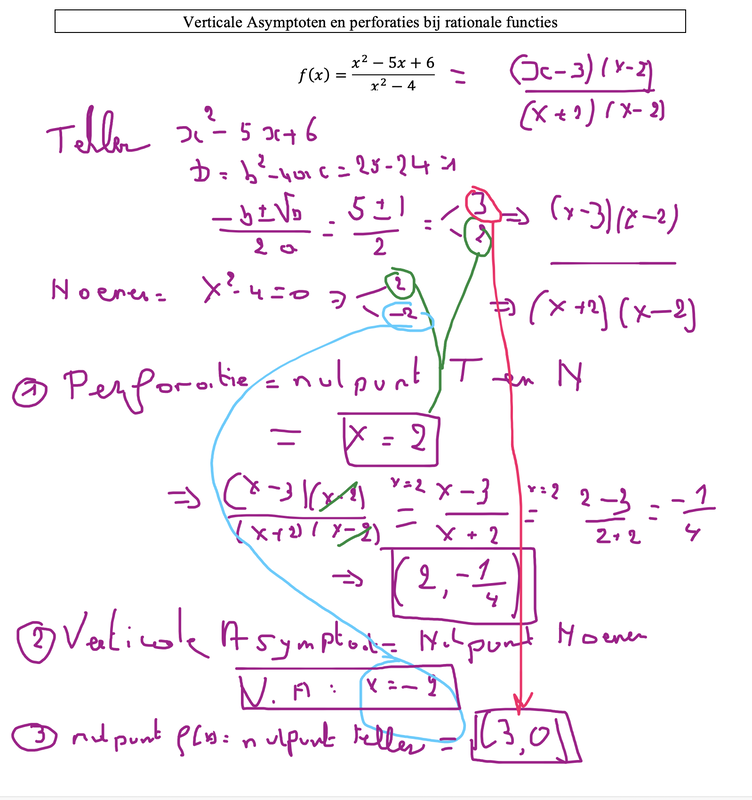 Verticale Asymptoten en perforaties bij rationale functies
f(x) = (x² − 5x + 6)/(x² − 4) = (x−3)(x−2)/(x+2)(x−2)
Teller x² − 5x + 6
D = b² − 4ac = 25 − 24 = 1
(−b ± √D)/(2a) = (5 ± 1)/2 = < 3 2 ⇒ (x−3)(x−2)
Noemer = x² − 4 = 0 ⇒ < 2 −2 ⇒ (x+2)(x−2)
① Perforatie = nulpunt T en N
= x = 2
⇒ (x−3)(x−2)/(x+2)(x−2) x=2 = (x−3)/(x+2) x=2 = (2−3)/(2+2) = −1/4
⇒ (2, −1/4)
② Verticale Asymptoot = Nulpunt Noemer
V.A : x = −2
③ nulpunt f(x) = nulpunt teller = (3,0)